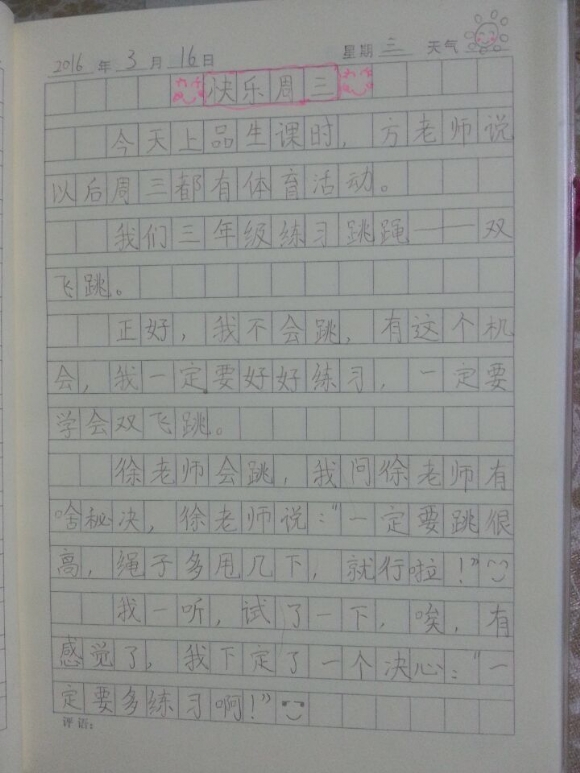 2016 年 3 月 16 日 星期 三 天气
快乐周三
今天上品生课时，方老师说
以后周三都有体育活动。
我们三年级练习跳踘——双
飞跳。
正好，我不会跳，有这个机
会，我一定要好好练习，一定要
学会双飞跳。
徐老师会跳，我问徐老师有
啥秘决，徐老师说：“一定要跳很
高，绳子多甩几下，就行啦！”
我一听，试了一下，唉，有
感觉了，我下定了一个决心：“一
定要多练习啊！”
评语：